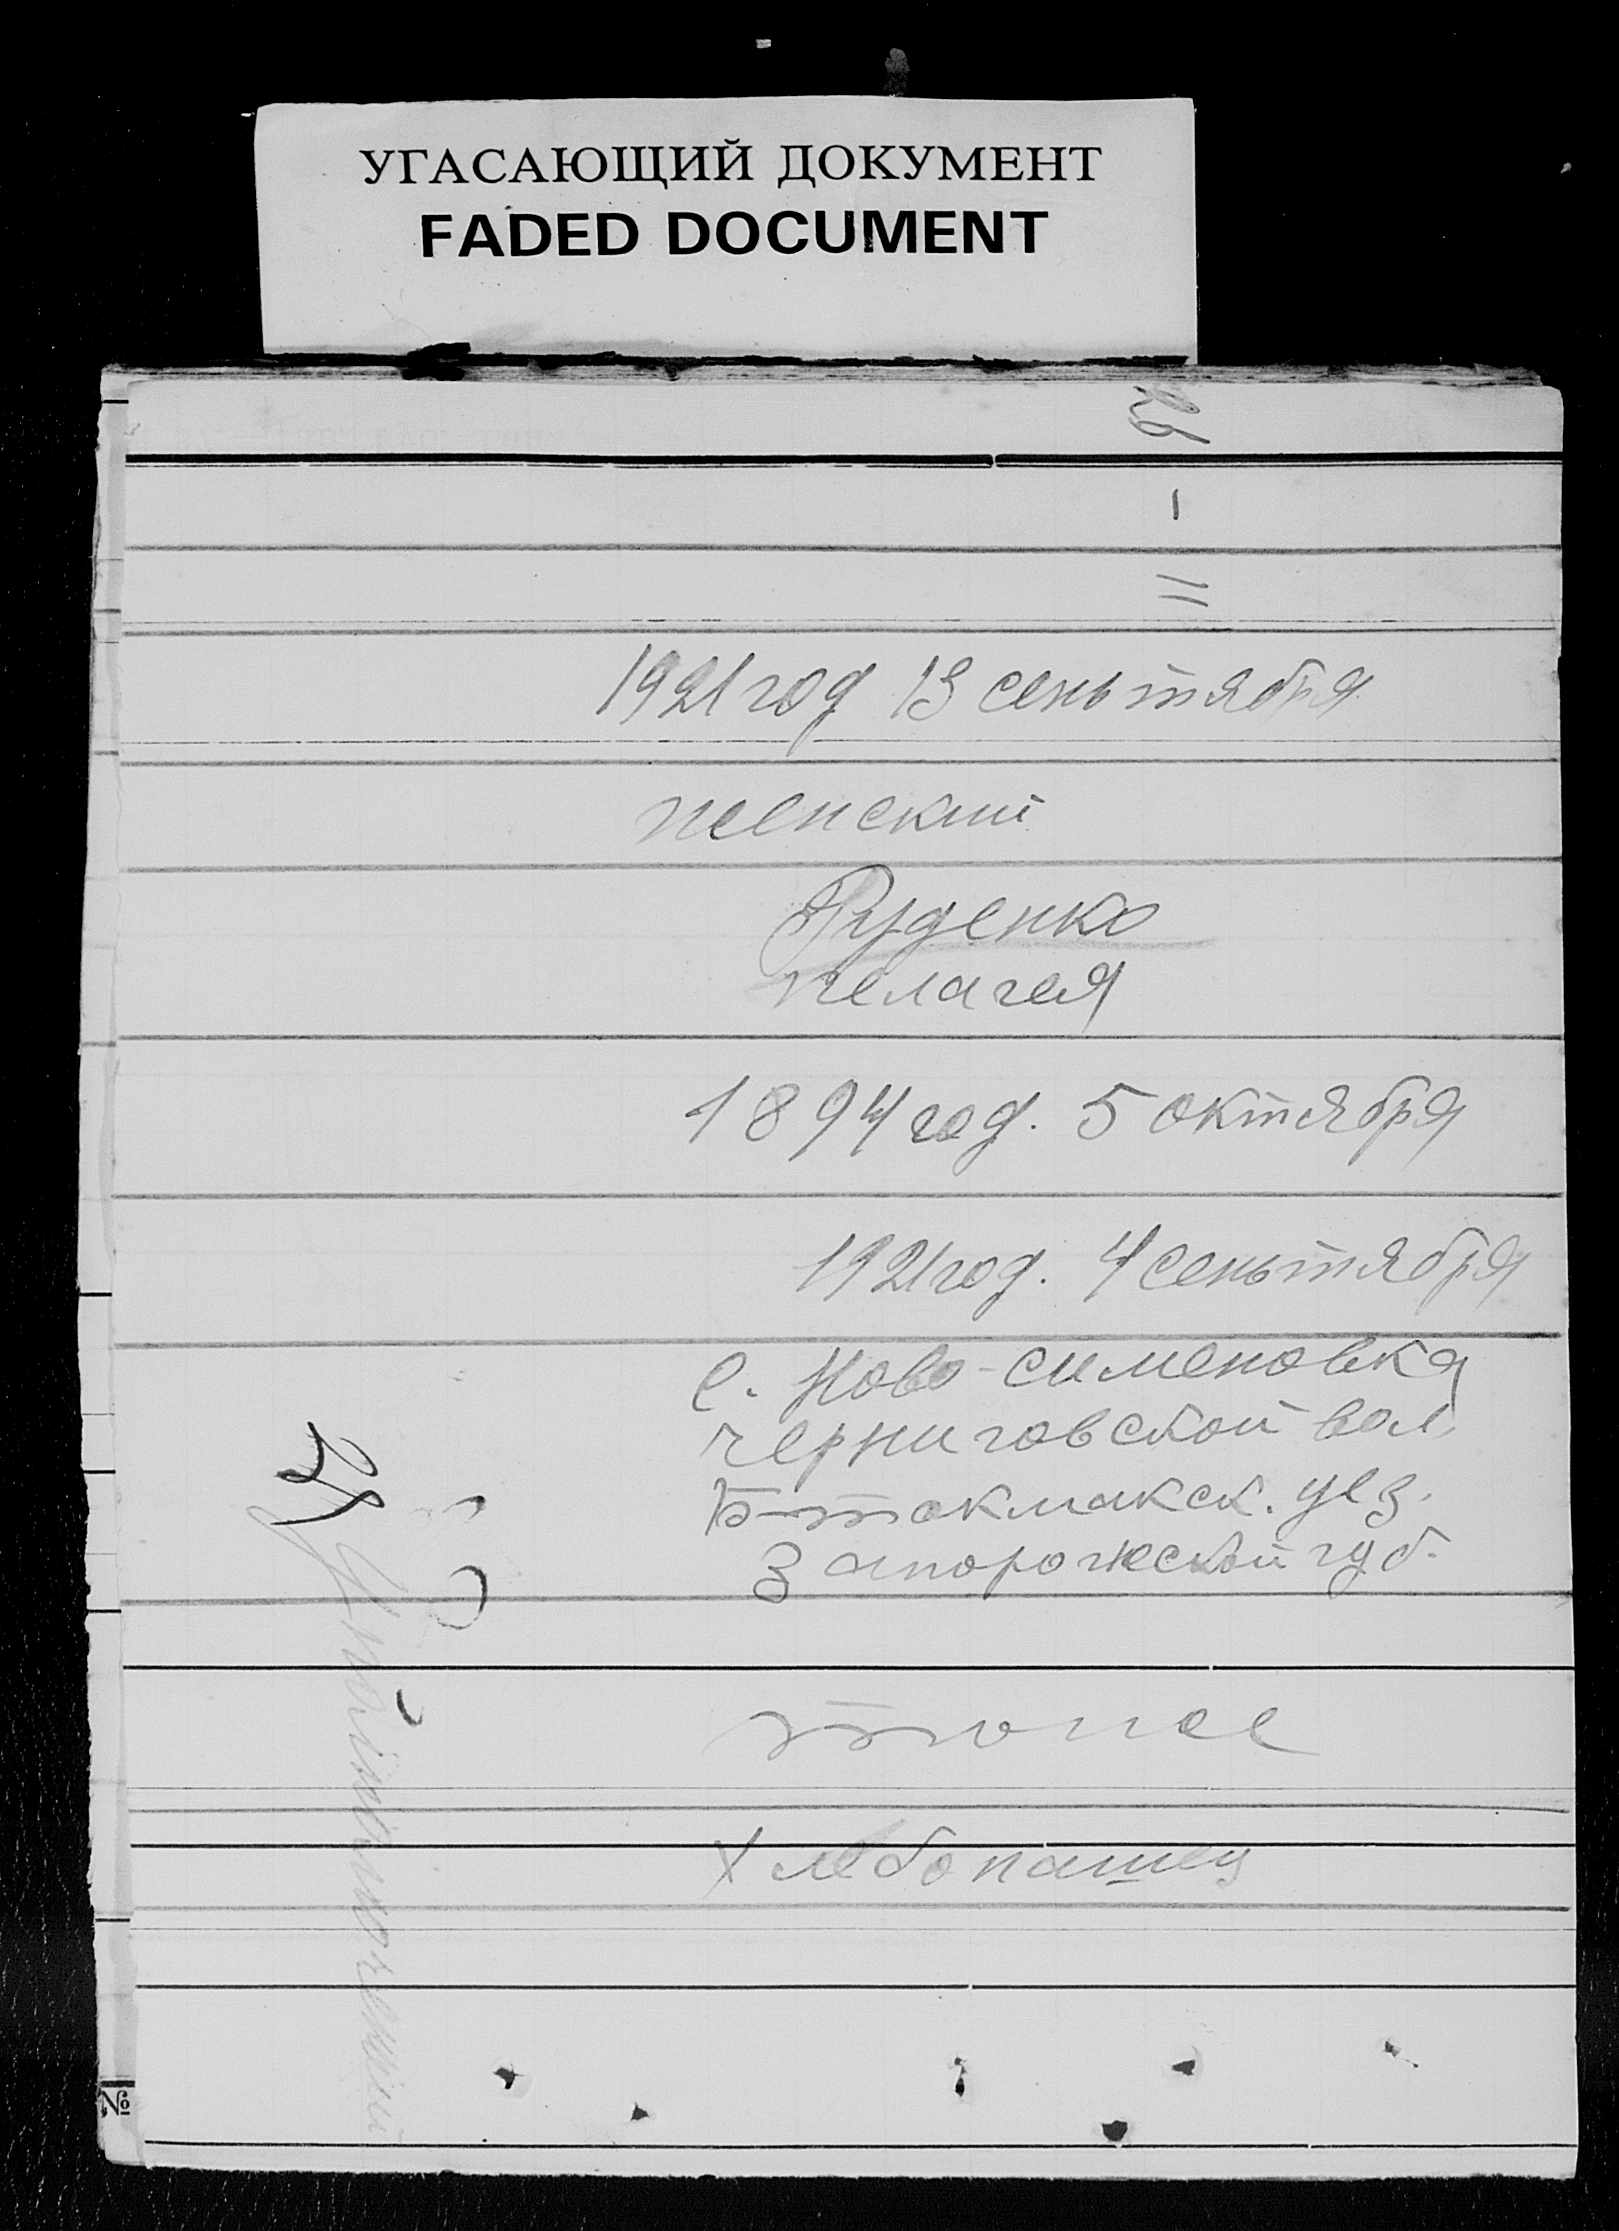 УГАСАЮЩИЙ ДОКУМЕНТ
FADED DOCUMENT
1921 год 13 сеньтября
женский
Руденко
пелагея
1894 год. 5 октября
1921 год. 4 сеньтября
с. Ново-сименовка
черниговской вол.
Б-токмакск. уез.
Запорожской губ.
тоже
хлебопашец
№